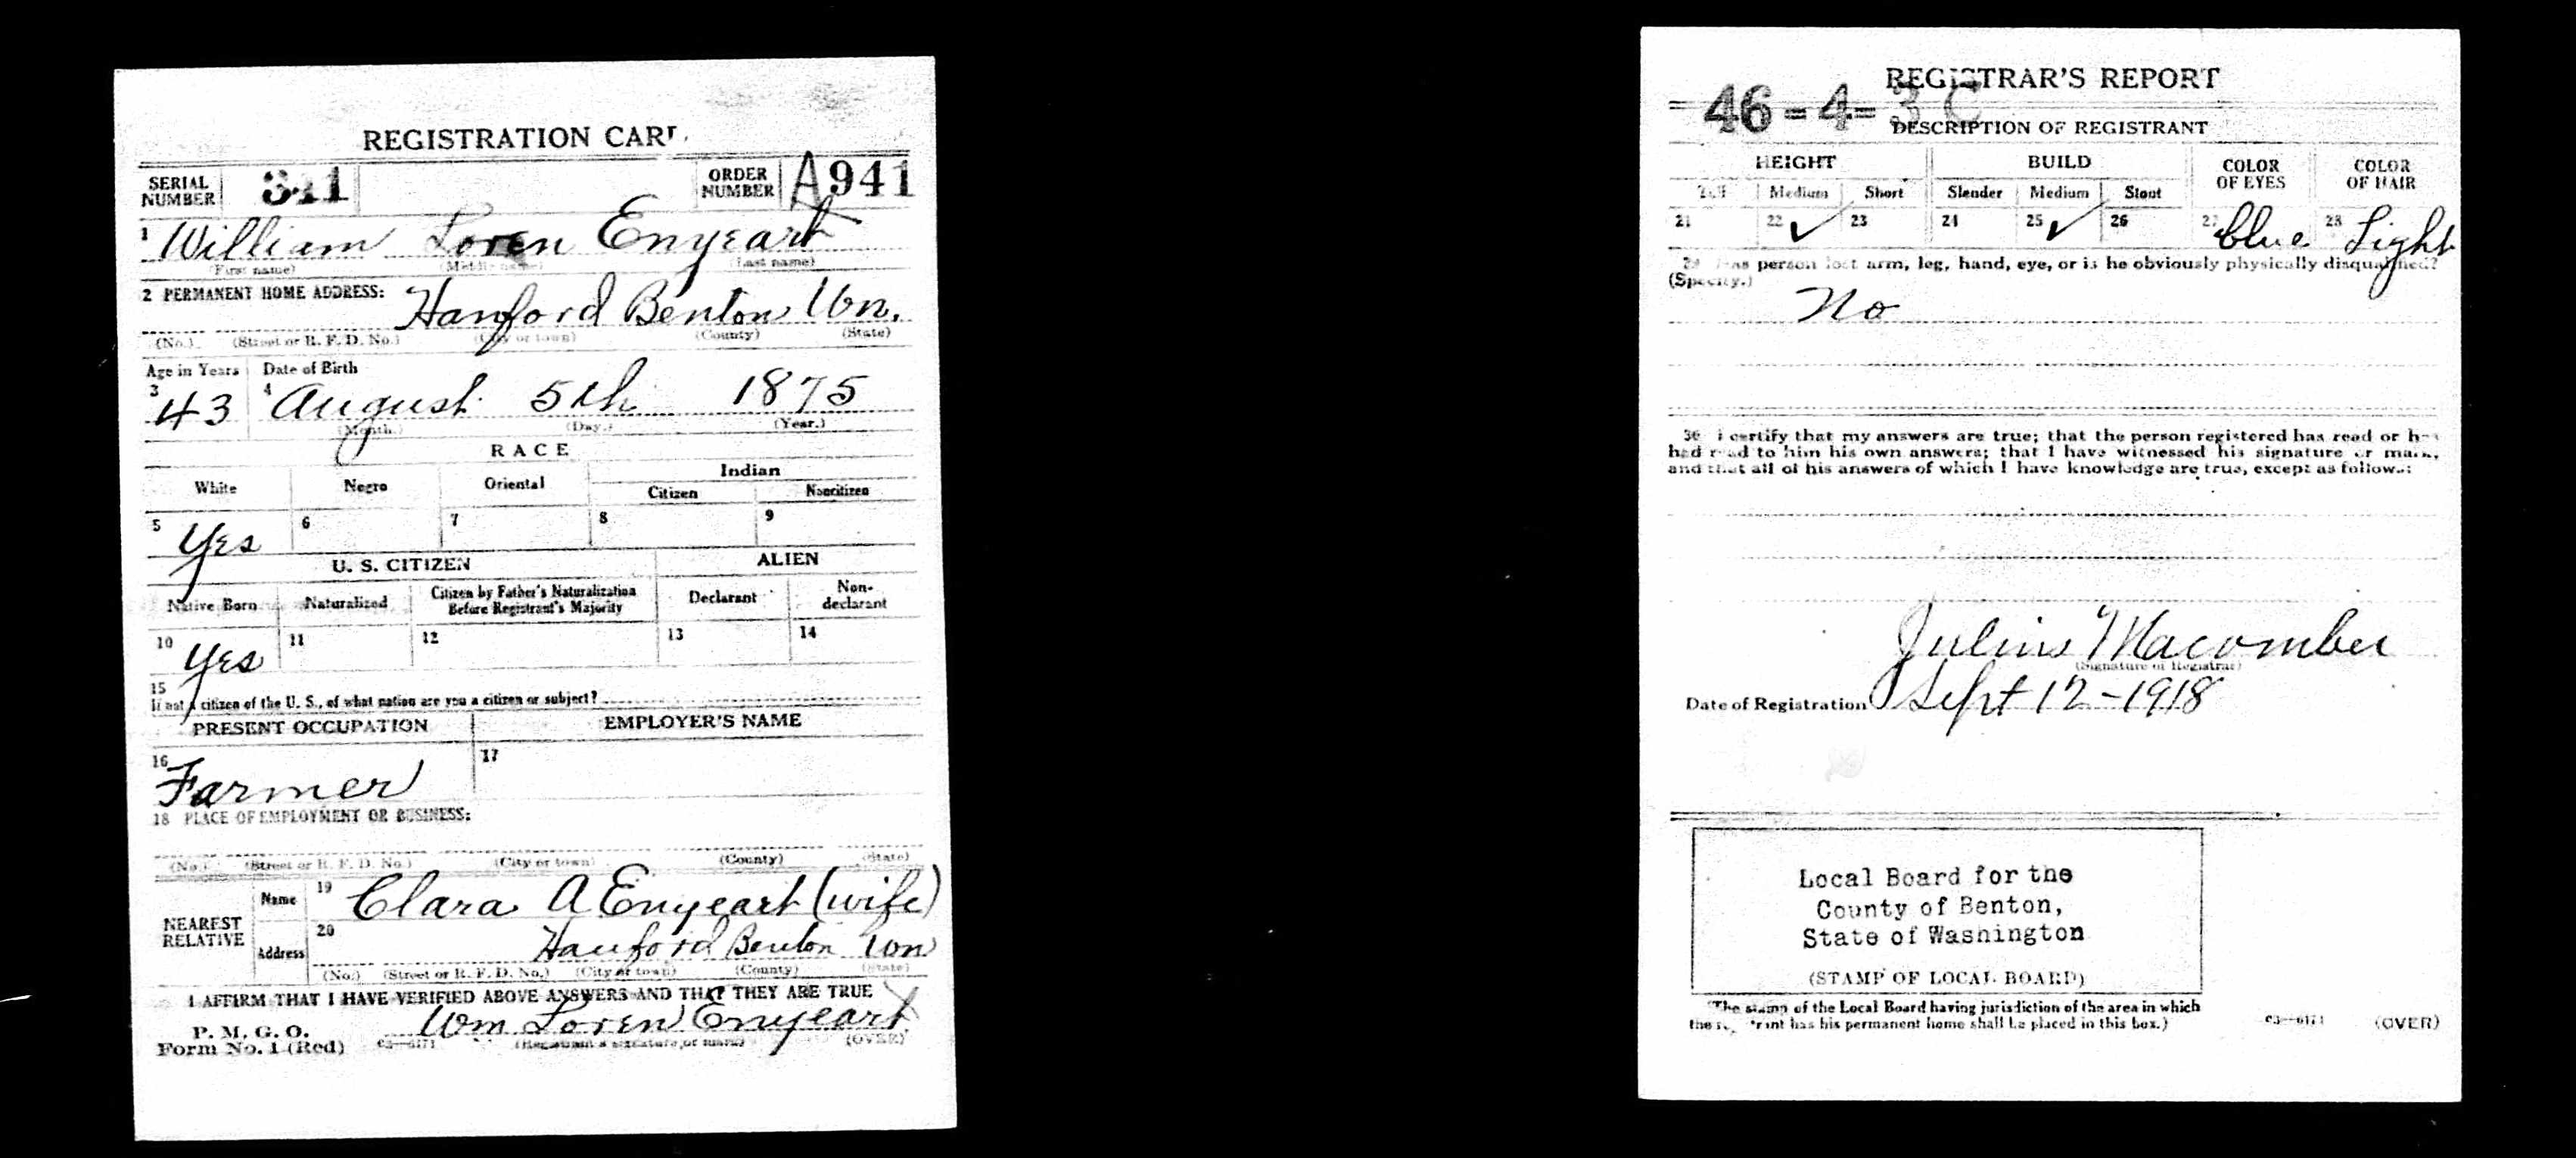 REGISTRATION CARD
SERIAL NUMBER
ORDER NUMBER A941
1 William Loren Enyeart
(First name) (Middle name) (Last name)
2 PERMANENT HOME ADDRESS:
Hanford Benton Wn.
(No.) (Street or R. F. D. No.) (City or town) (County) (State)
Age in Years Date of Birth
3 43 4 August 5th 1875
(Month.) (Day.) (Year.)
RACE
White Negro Oriental Indian
Citizen Noncitizen
5 Yes 6 7 8 9
U. S. CITIZEN ALIEN
Native Born Naturalized Citizen by Father's Naturalization Before Registrant's Majority Declarant Non-declarant
10 Yes 11 12 13 14
15
If not a citizen of the U. S., of what nation are you a citizen or subject?
PRESENT OCCUPATION EMPLOYER'S NAME
16 Farmer 17
18 PLACE OF EMPLOYMENT OR BUSINESS:
(No.) (Street or R. F. D. No.) (City or town) (County) (State)
NEAREST RELATIVE
Name 19 Clara A Enyeart (wife)
Address 20 Hanford Benton Wn
(No.) (Street or R. F. D. No.) (City or town) (County) (State)
I AFFIRM THAT I HAVE VERIFIED ABOVE ANSWERS AND THAT THEY ARE TRUE
P. M. G. O.
Form No. 1 (Red) 03—6171 Wm Loren Enyeart
(Registrant's signature or mark) (OVER)
REGISTRAR'S REPORT
46-4-3 C
DESCRIPTION OF REGISTRANT
HEIGHT BUILD COLOR OF EYES COLOR OF HAIR
Tall Medium Short Slender Medium Stout
21 22 ✓ 23 24 25 ✓ 26 27 blue 28 Light
29 Has person lost arm, leg, hand, eye, or is he obviously physically disqualified?
(Specify.)
No
30 I certify that my answers are true; that the person registered has read or has
had read to him his own answers; that I have witnessed his signature or mark,
and that all of his answers of which I have knowledge are true, except as follows:
Julius Macomber
(Signature of Registrar)
Date of Registration Sept 12-1918
Local Board for the
County of Benton,
State of Washington
(STAMP OF LOCAL BOARD)
(The stamp of the Local Board having jurisdiction of the area in which
the registrant has his permanent home shall be placed in this box.)
03—6171 (OVER)